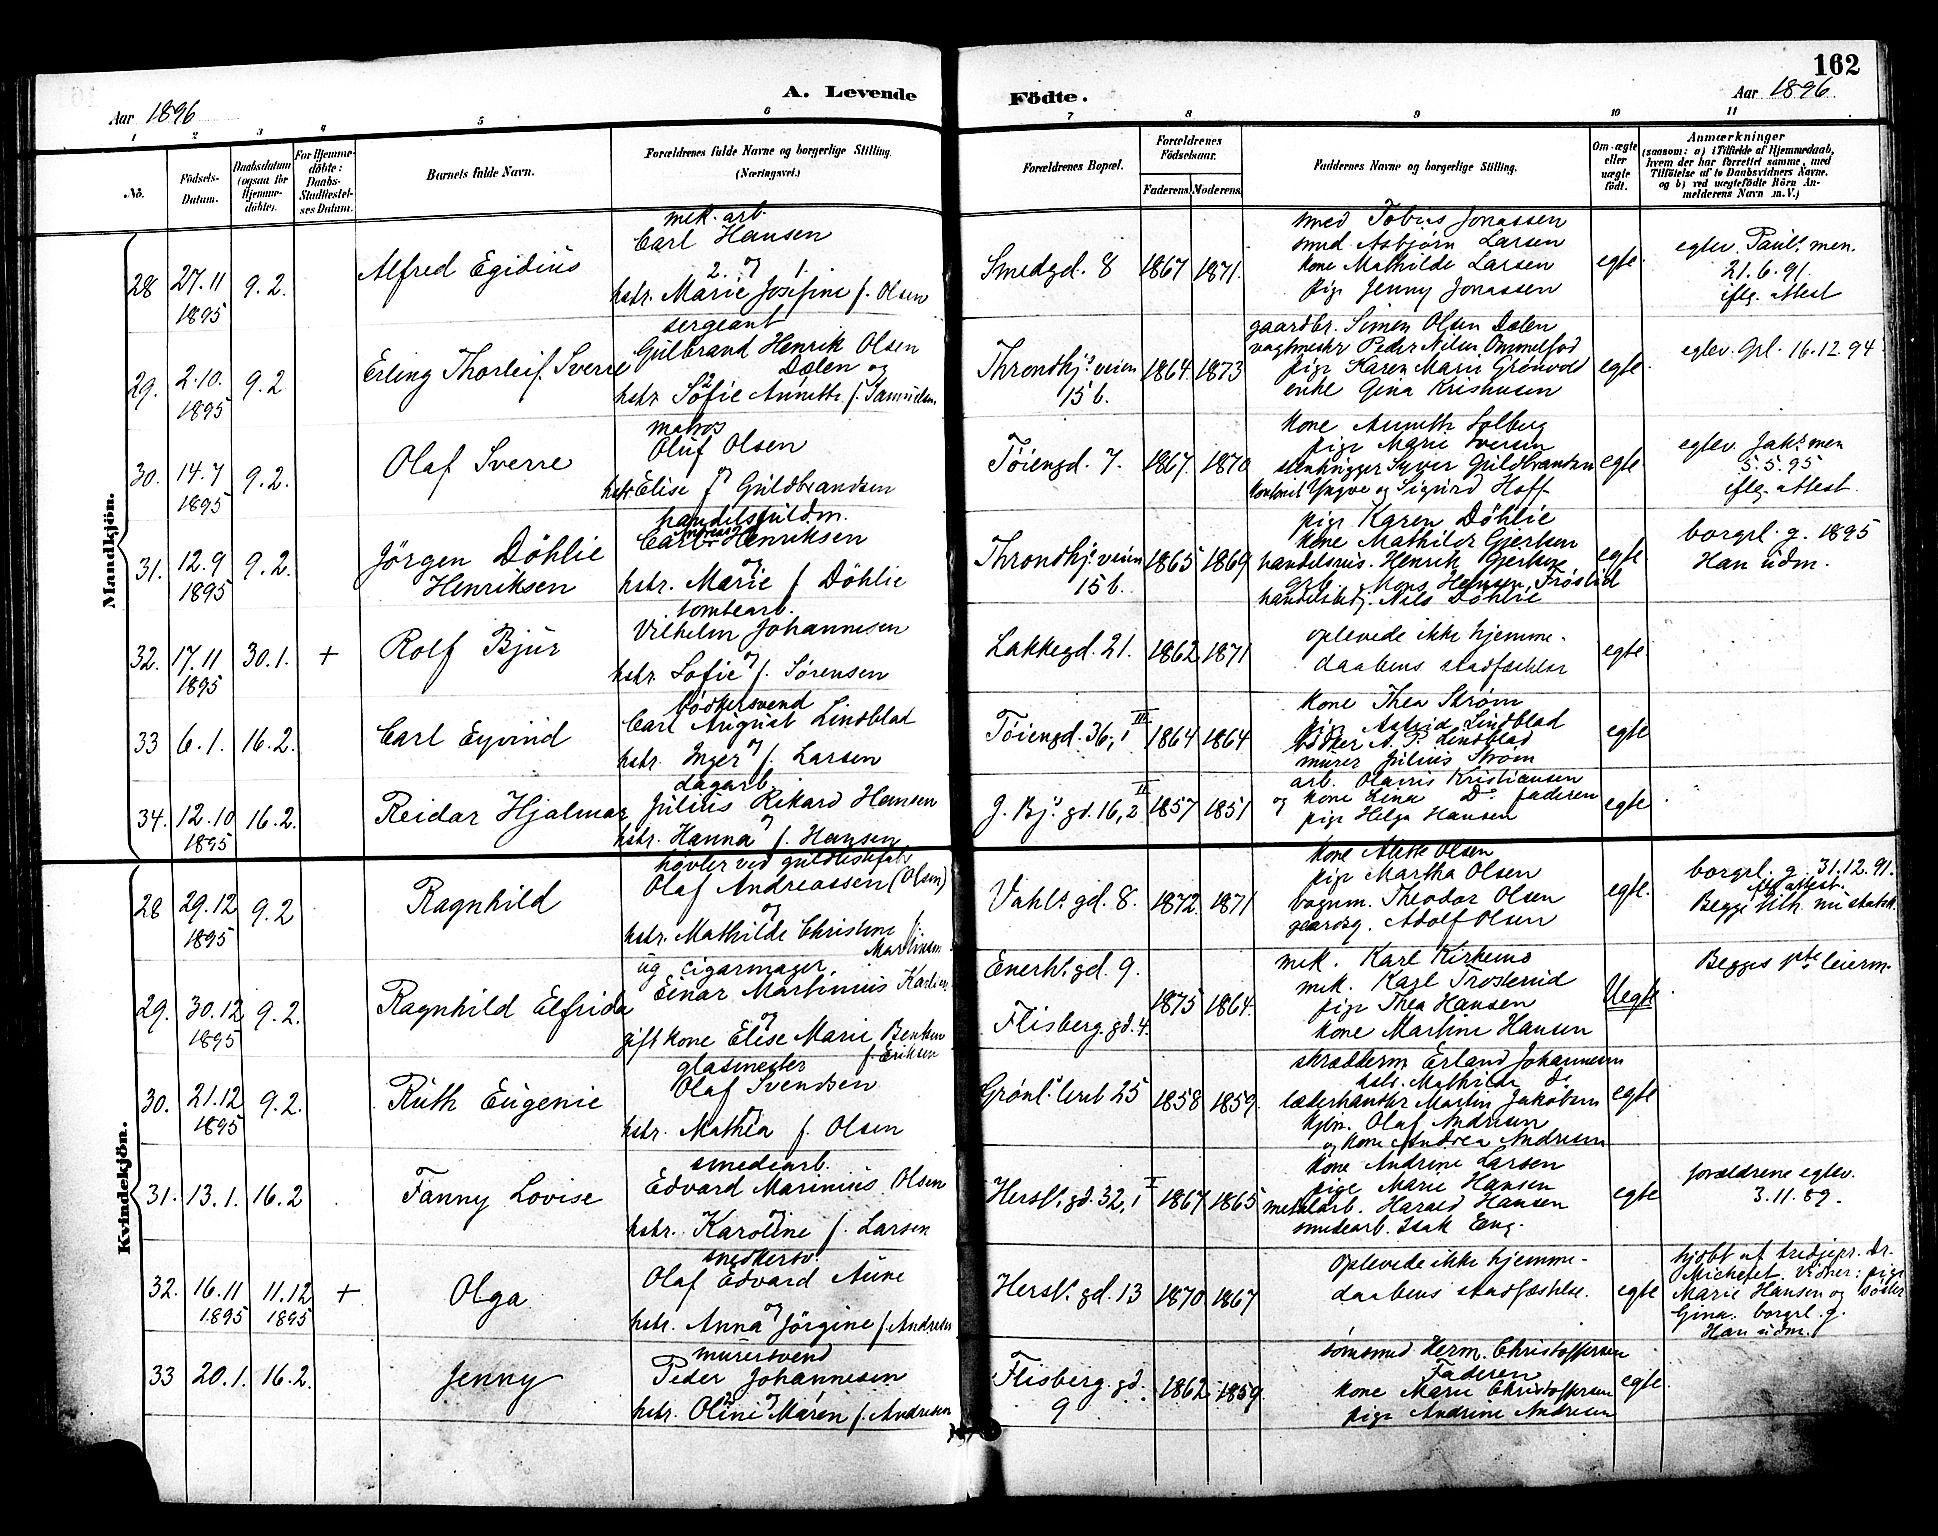 162
A. Levende Födte.
Aar 1896
Aar 1896.
1 2 3 4 5 6 7 8 9 10 11
No.
Födsels-Datum.
Daabsdatum (ogsaa for Hjemme-döbte).
For Hjemme-döbte: Daabs-Stadfæstel-ses Datum.
Barnets fulde Navn.
Forældrenes fulde Navne og borgerlige Stilling.
(Næringsvei.)
Forældrenes Bopæl.
Forældrenes Födselsaar.
Faderens. Moderens.
Faddernes Navne og borgerlige Stilling.
Om ægte eller uægte födt.
Anmærkninger
(saasom: a) i Tilfælde af Hjemmedaab,
hvem der har forrettet samme, med
Tilföielse af to Daabsvidners Navne,
og b) ved uægtefödte Börn An-
melderens Navn m. V.)
Mandkjön.
28 27.11 1895 9.2. Alfred Egidius
mek. arb.
Carl Hansen
2. og 1.
hstr. Marie Josefine f. Olsen
Smedgd. 8 1867 1871.
smed Tobias Jonassen
smed Asbjørn Larsen
kone Mathilde Larsen
pige Jenny Jonassen
egte.
egtev. Pauls men.
21.6.91.
iflg. attest
29. 2.10. 1895 9.2 Erling Thorleif Sverre
sergeant
Gulbrand Henrik Olsen
Dælen og
hstr. Sofie Annette f. Samuelsen
Throndhj.s veien 15 b. 1864. 1873
gaardbr. Simen Olsen Dælen
vagtmestr Peder Nilsen
pige Karen Marie Grønvold
enke Gina Kristiansen
egte.
egtev. Grl. 16.12.94
30. 14.7 1895 9.2. Olaf Sverre
matros
Oluf Olsen
hstr. Elise f. Guldbrandsen
Töiengd. 7. 1867. 1870
kone Annette Solberg
pige Marie Iversen
stenhugger Syver Guldbrandsen
kontorist Yngve og Sigurd Hoff
egte
egtev. Jak.s men
5.5.95
iflg. attest.
31. 12.9 1895 9.2. Jörgen Döhlie
Henriksen
handelsfuldm.
Carl Henriksen
og
hstr. Marie f. Döhlie
Throndhj. veien 15 b. 1865 1869
pige Karen Döhlie
kone Mathilde Gjerlsen
handelsreis. Henrik
arb. Mons Hansen Tröstad
handelsbetj. Nils Döhlie
egte
borgrl. g. 1895
Han udm.
32. 17.11 1895 30.1. + Rolf Bjur
tomtearb.
Vilhelm Johannesen
og
hstr. Sofie f. Sørensen
Lakkegd. 21. 1862 1871
oplevede ikke hjemme-
daabens stadfæstelse
egte.
33 6.1. 16.2. Carl Eyvind
bødkersvend
Carl August Lindblad
og
hstr. Inger f. Larsen
Töiengd. 36, III 1864 1864
kone Thea Strøm
pige Astrid Lindblad
bödker A. P. Lindblad
murer Julius Strøm
egte
34. 12.10 1895 16.2. Reidar Hjalmar
dagarb.
Julius Rikard Hansen
og
hstr. Hanna f. Hansen
G. Bj.s gd. 16,2 II 1857 1851
arb. Olavus Kristiansen
og kone Lina Do. faderen
pige Helga Hansen
egte
Kvindekjön.
28 29.12 1895 9.2 Ragnhild
høvler ved guldlistefabr.
Olaf Andreassen (Olsen)
og
hstr. Mathilde Christine f. Martinsen
Vahls gd. 8. 1872. 1871
kone Alette Olsen
pige Martha Olsen
bognm. Theodor Olsen
gaardsg. Adolf Olsen
egte.
borgrl. g. 31.12.91.
iflg attest.
Begge tilh. nu statsk.
29. 30.12 1895 9.2. Ragnhild Elfrida
ug cigarmager.
Einar Martinius Karlsen
og
gift kone Elise Marie Bentsen
f. Eriksen
Enerh.s gd. 9.
Flisberg. gd. 4. 1875 1864.
mek. Karl Kirkemo
mek. Karl Trosterud
pige Thea Hansen
kone Martine Hansen
Uegte
Begges 1ste leierm.
30. 21.12 1895 9.2. Ruth Eugenie
glasmester
Olaf Svendsen
og
hstr. Mathea f. Olsen
Grönl.s leret 25 1858 1859.
skrædderm. Erland Johannesen
hstr. Mathilde Do
læderhandler Martin Jakobsen
kjbm. Olaf Andresen
og kone Andrea Andresen
egte
31. 13.1. 16.2 Fanny Lovise
smedearb.
Edvard Marinius Olsen
og
hstr. Karoline f. Larsen
Hersl.s gd. 32, I 1867 1865
kone Andrine Larsen
pige Marie Hansen
metalarb. Harald Hansen
smedearb. Isak Eng.
egte
forældrene egtev.
3.11.89.
32. 16.11 1895 11.12 1895 + Olga
snedkersv.
Olaf Edvard Aune
og
hstr. Anna Jörgine f. Andresen
Hersl.s gd. 13 1870 1867
oplevede ikke hjemme-
daabens stadfæstelse.
egte
hjdbt af tredjepr. Dr.
Michelet. Vidner: pige
Marie Hansen og söster
Gina. borgrl. g.
Han udm.
33 20.1. 16.2. Jenny
murersvend
Peder Johannesen
og
hstr. Oline Maren f. Andresen
Flisberg. gd. 9 1862 1859.
sömsmed Herm. Christoffersen
Faderen
kone Marie Christoffersen
pige Andrine Andresen
egte.